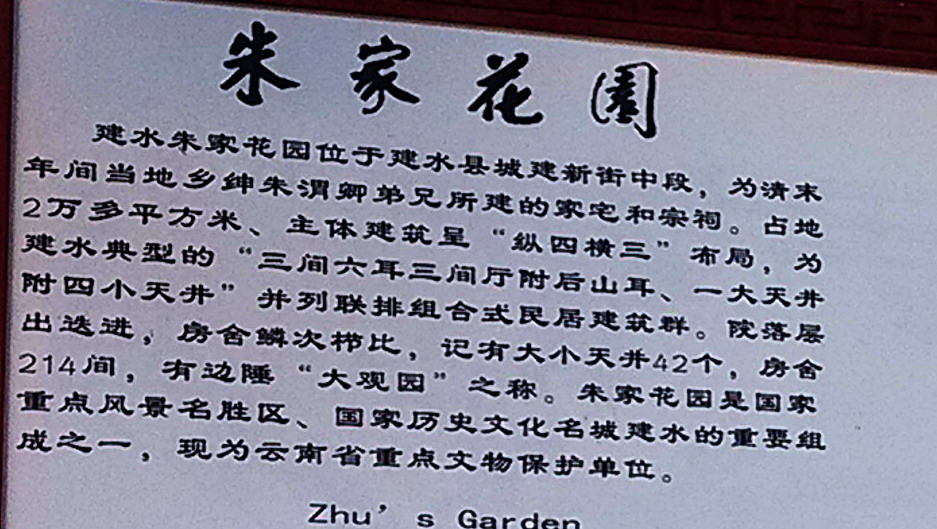 朱家花園
建水朱家花园位于建水县城建新街中段，为清末
年间当地乡绅朱渭卿弟兄所建的家宅和宗祠。占地
2万多平方米、主体建筑呈“纵四横三”布局，为
建水典型的“三间六耳三间厅附后山耳、一大天井
附四小天井”并列联排组合式民居建筑群。院落层
出迭进，房舍鳞次栉比，记有大小天井42个，房舍
214间，有边陲“大观园”之称。朱家花园是国家
重点风景名胜区、国家历史文化名城建水的重要组
成之一，现为云南省重点文物保护单位。
Zhu's Garden